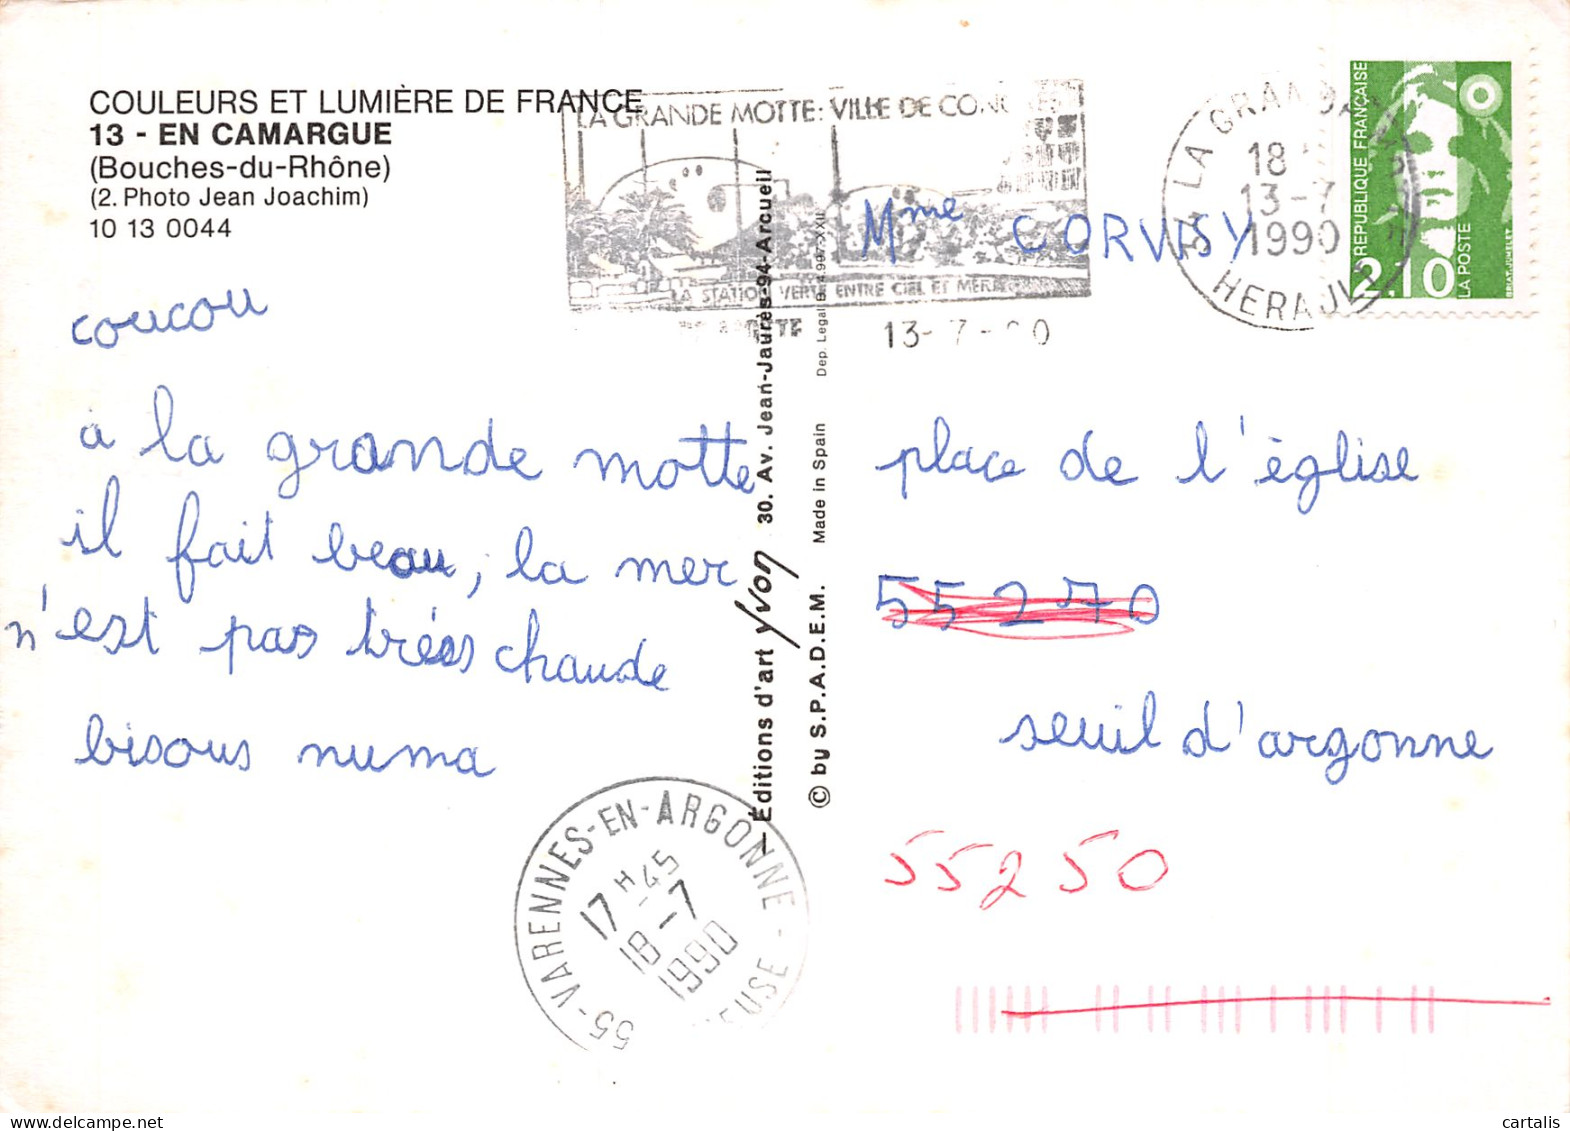 COULEURS ET LUMIÈRE DE FRANCE
13 - EN CAMARGUE
(Bouches-du-Rhône)
(2. Photo Jean Joachim)
10 13 0044
LA GRANDE MOTTE: VILLE DE
LA STATION VERTE ENTRE CIEL ET MER
13-7-
34 LA GRANDE
18
13-7
1990
HERAULT
REPUBLIQUE FRANÇAISE
2,10
LA POSTE
BRIAT-JUMELET
coucou
a la grande motte
il fait beau, la mer
n'est pas très chaude
bisous numa
— Éditions d'art Yvon 30. Av. Jean-Jaurès-94-Arcueil
© by S.P.A.D.E.M. Made in Spain Dep. Legal B. 4.997-XXII
Mme CORVISY
place de l'église
55270
seuil d'argonne
55250
55-VARENNES-EN-ARGONNE - MEUSE
17 H 45
18-7
1990
cartalis